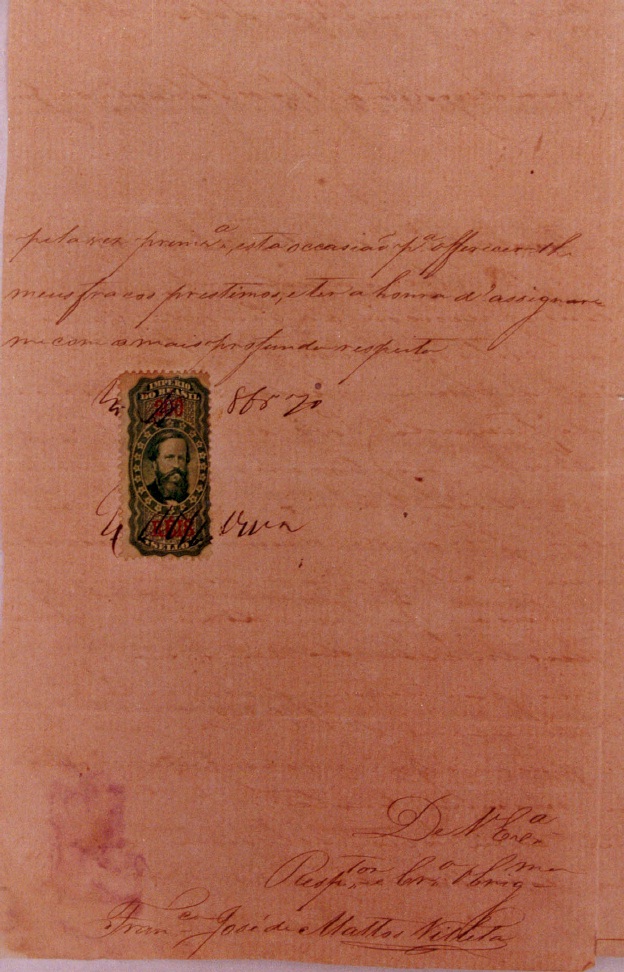 pela vez prim.ª, esta occasião p.ª offerecer-lh
meus fracos prestimos, e ter a honra d'assignar-
me com o mais profundo respeito
IMPERIO
DO BRASIL
200
865 70
SELLO
De V. Ex.ª
Resp.tor e Cr.º Obrig.mo
Fran.co José de Mattos